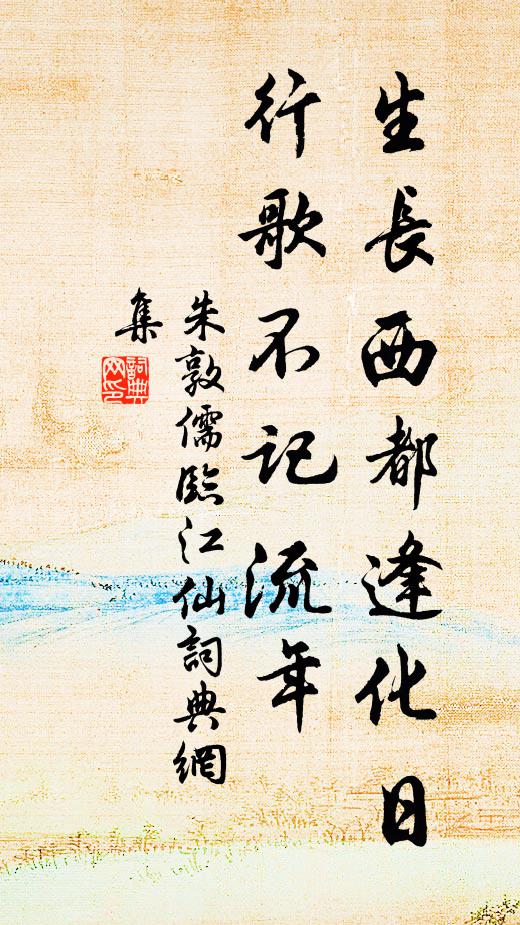 生長西都逢化日
行歌不记流年
朱敦儒臨江仙詞典網
集
詞典
网印